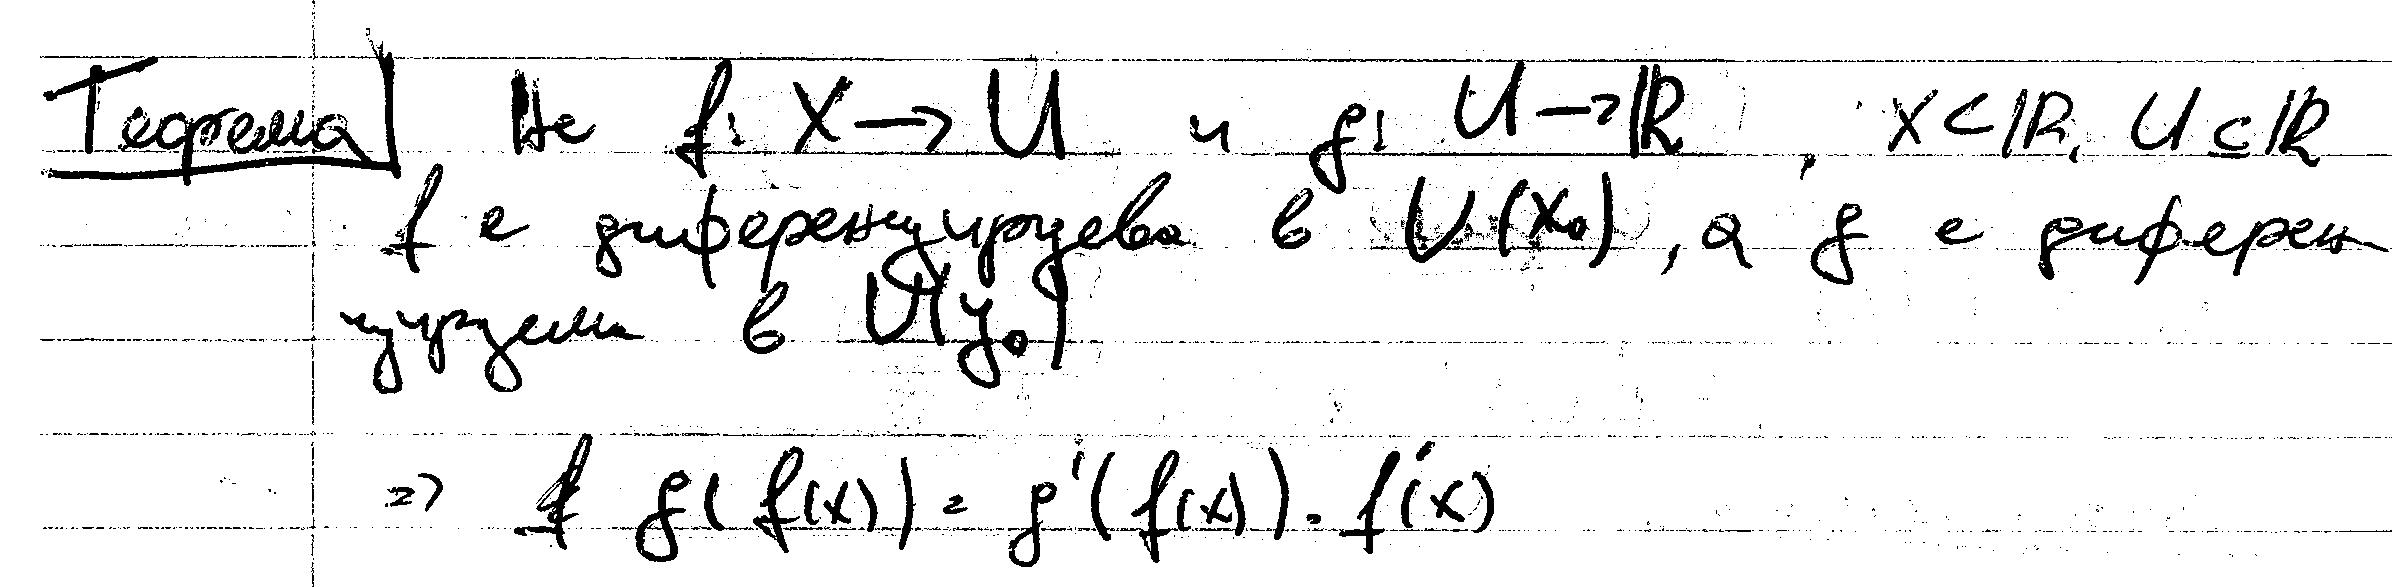 Теорема Не f: X → U и g: U → ℝ, X ⊂ ℝ, U ⊆ ℝ
f е диференцируева в U(x₀), а g е диферен
цируема в U(y₀)
=> g(f(x)) = g'(f(x)).f'(x)